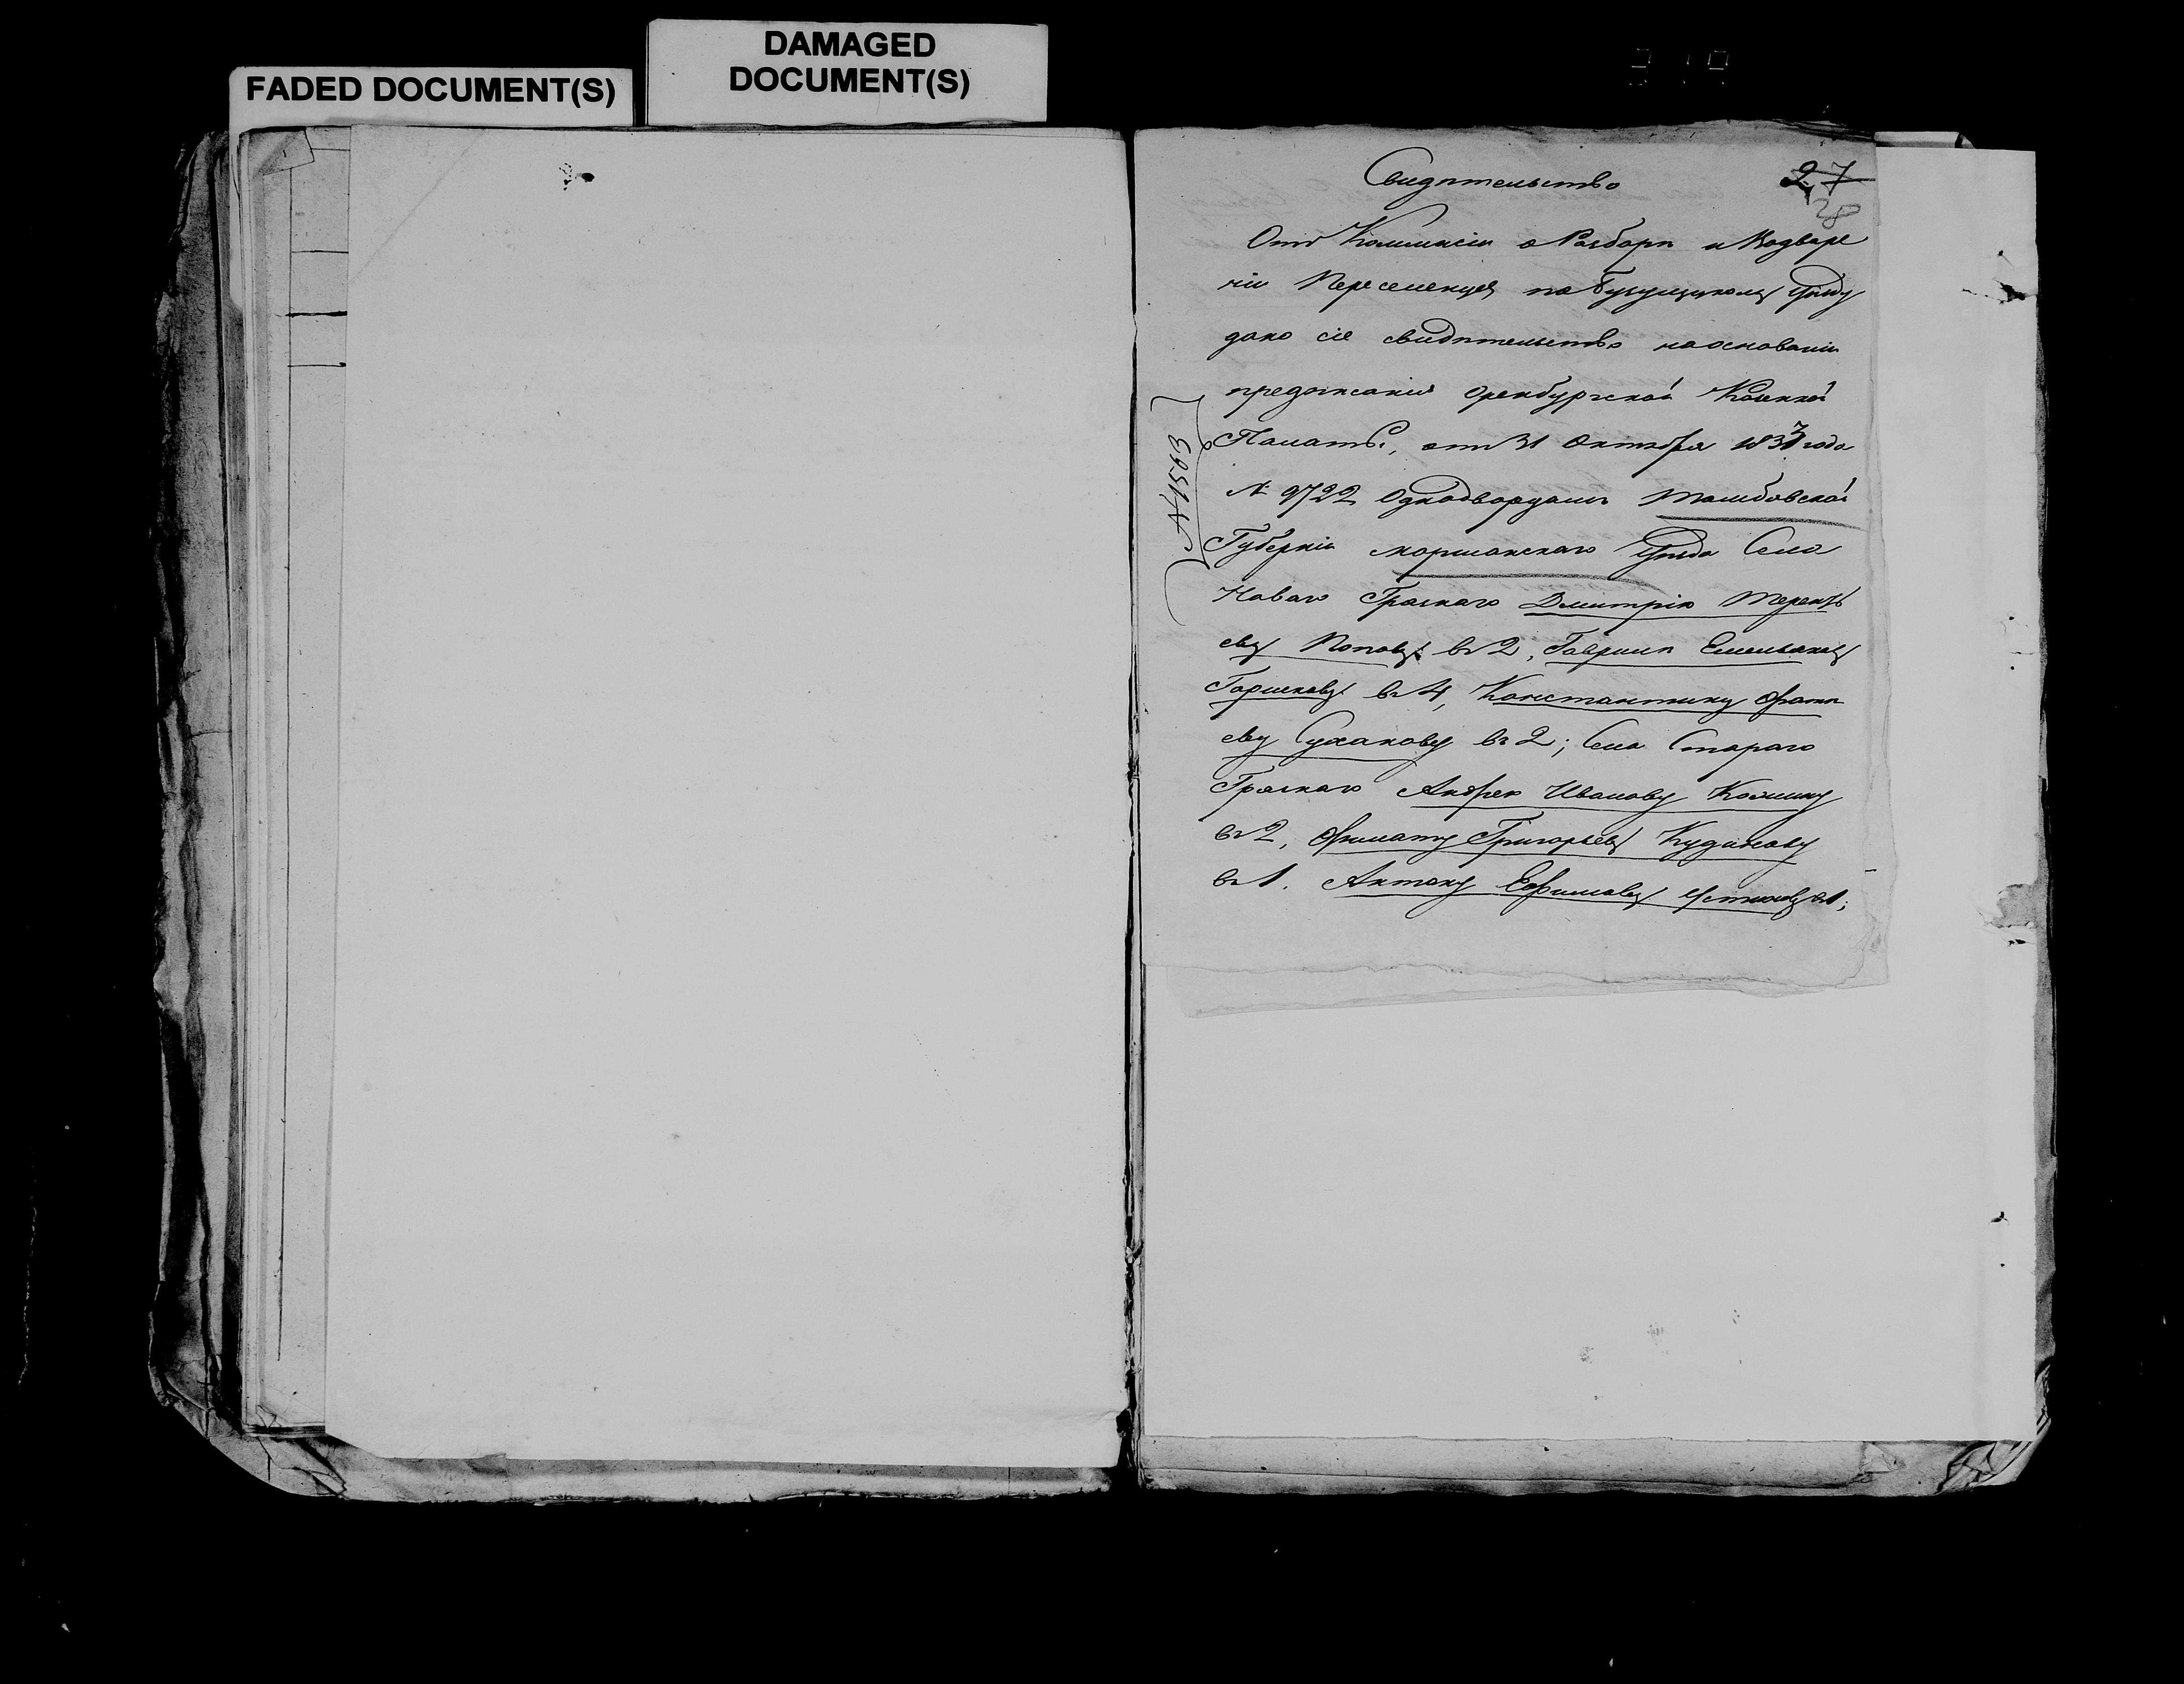 FADED DOCUMENT(S)
DAMAGED
DOCUMENT(S)
Свидѣтельство
27
28
Отъ Коммисіи о Разборѣ и Водваре
ніи Переселенцевъ по Бузулуцкому уѣзду
дано сіе свидѣтельство наосновании
предписанія Оренбургской Казенной
Палаты, отъ 31 Октября 1833 года
№ 9722 Однодворцамъ Тамбовской
Губерніи моршанскаго уѣзда Села
Новаго Грязнаго Дмитрію Терентъ
еву Попову въ 2, Гаврилѣ Емельянову
Горшкову въ 4, Константину
еву Суханову въ 2; Села Стараго
Грязнаго Андрею Иванову
въ 2, Филату Григорьеву Кудинову
въ 1. Антону Ефимову Устинову въ 1;